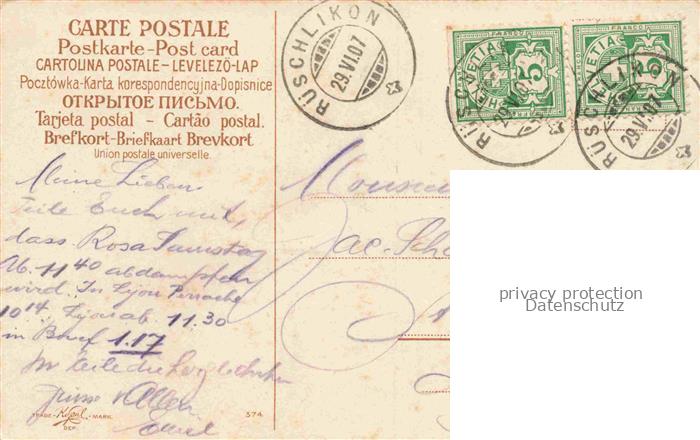 CARTE POSTALE
Postkarte-Post card
CARTOLINA POSTALE-LEVELEZŐ-LAP
Pocztówka-Karta korespondencyjna-Dopisnice
ОТКРЫТОЕ ПИСЬМО.
Tarjeta postal - Cartão postal.
Brefkort-Briefkaart Brevkort.
Union postale universelle.
RÜSCHLIKON
29.VI.07
FRANCO
HELVETIA
5
RÜSCHLIKON
29.VI.07
FRANCO
HELVETIA
5
RÜSCHLIKON
29.VI.07
Meine Lieben
Teile Euch mit,
dass Rosa Samstag
Ab. 11 40 abdampfen
wird. In Lyon Perrache
10 14. Lyon ab. 11.30
in 1.17
Monsieur
Jac. Sch
TRADE-MARK.
DEP.
374
privacy protection
Datenschutz